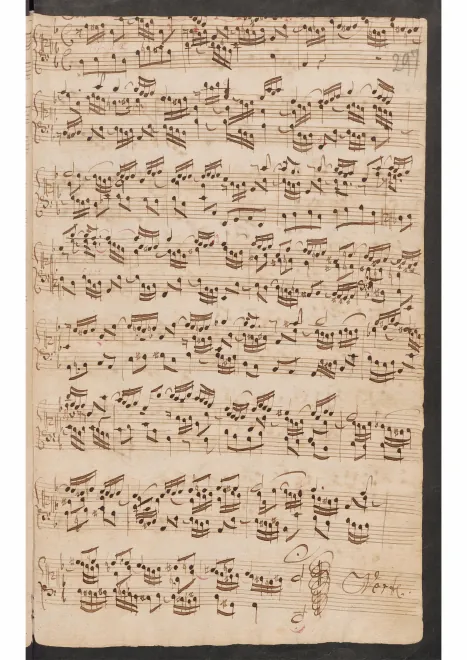 297
Verte.